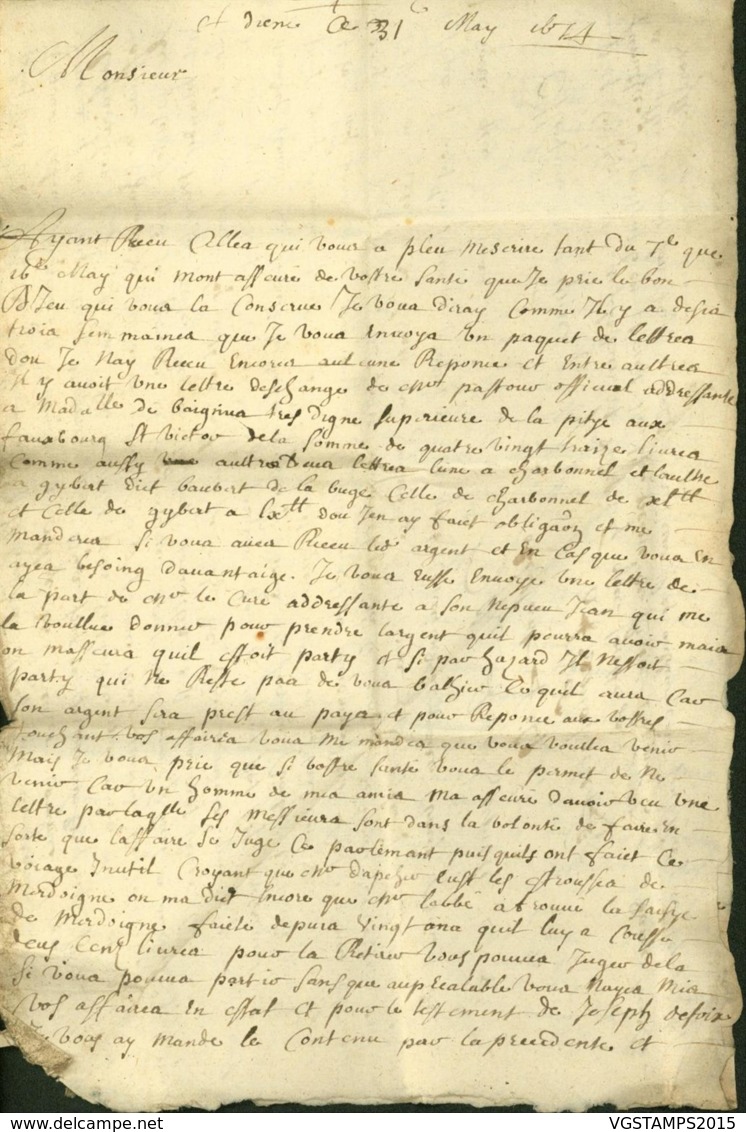 A diene Ce 31 May 1674
Monsieur
Ayant Receu Celles qui vous a pleu mescrire tant du 7e que
16e May qui mont asseuré de vostre santé que Je prie le bon
Dieu qui vous la Conserve Je vous diray Comme Il y a desia
trois semmaines que Je vous Envoya Un paquet de lettres
dou Je Nay Receu Encores aulcune Reponce et Entre aultres
Il y avoit une lettre deschange de Mr pastour official addressante
a Madalle de tres digne superieure de la pitye aux
fauxbourg St victor de la somme de quatre vingt traize livres
Comme aussy aultres deux lettres lune a Charbonnel et laultre
a gybert dict baubert de la buge Celle de Charbonnel de xltt
et Celle de gybert a lxtt dou Jen ay faict obligaon et me
manderes si vous aves Receu led argent et En Cas que vous En
ayes besoing davantaige. Je vous eusse Envoyé une lettre de
la part de Mr le Curé addressante a son Nepveu Jean qui me
la voullu donner pour prendre largent quil pourra avoir mais
on massura quil estoit party et si par hazard Il Nestoit
party qui Ne Reste pas de vous Ce quil aura Car
son argent sera prest au pays et pour Reponce aux vostres
touchant vos affaires vous me mandes que vous voulles venir
Mais Je vous prie que si vostre santé vous le permet de Ne
venir Car un homme de mes amis ma asseuré davoir veu une
lettre par laqlle ses Messieurs sont dans la volonté de faire En
sorte que laffaire se Juge Ce parlemant puis quils ont faict Ce
voiage Inutil Croyant que Mr dapchier eust les de
Merdoigne on ma dict Encore que Mr labbé a trouvé la
de Merdoigne faicte depuis vingt ans quil luy a Couste
deux Cens livres pour la Retirer vous pouves Juger de la
si vous pouves partir sans que au preallable vous Nayes mis
vos affaires En estat et pour le testement de Joseph
Je vous ay mandé le Contenu par la precedente et
VGSTAMPS2015